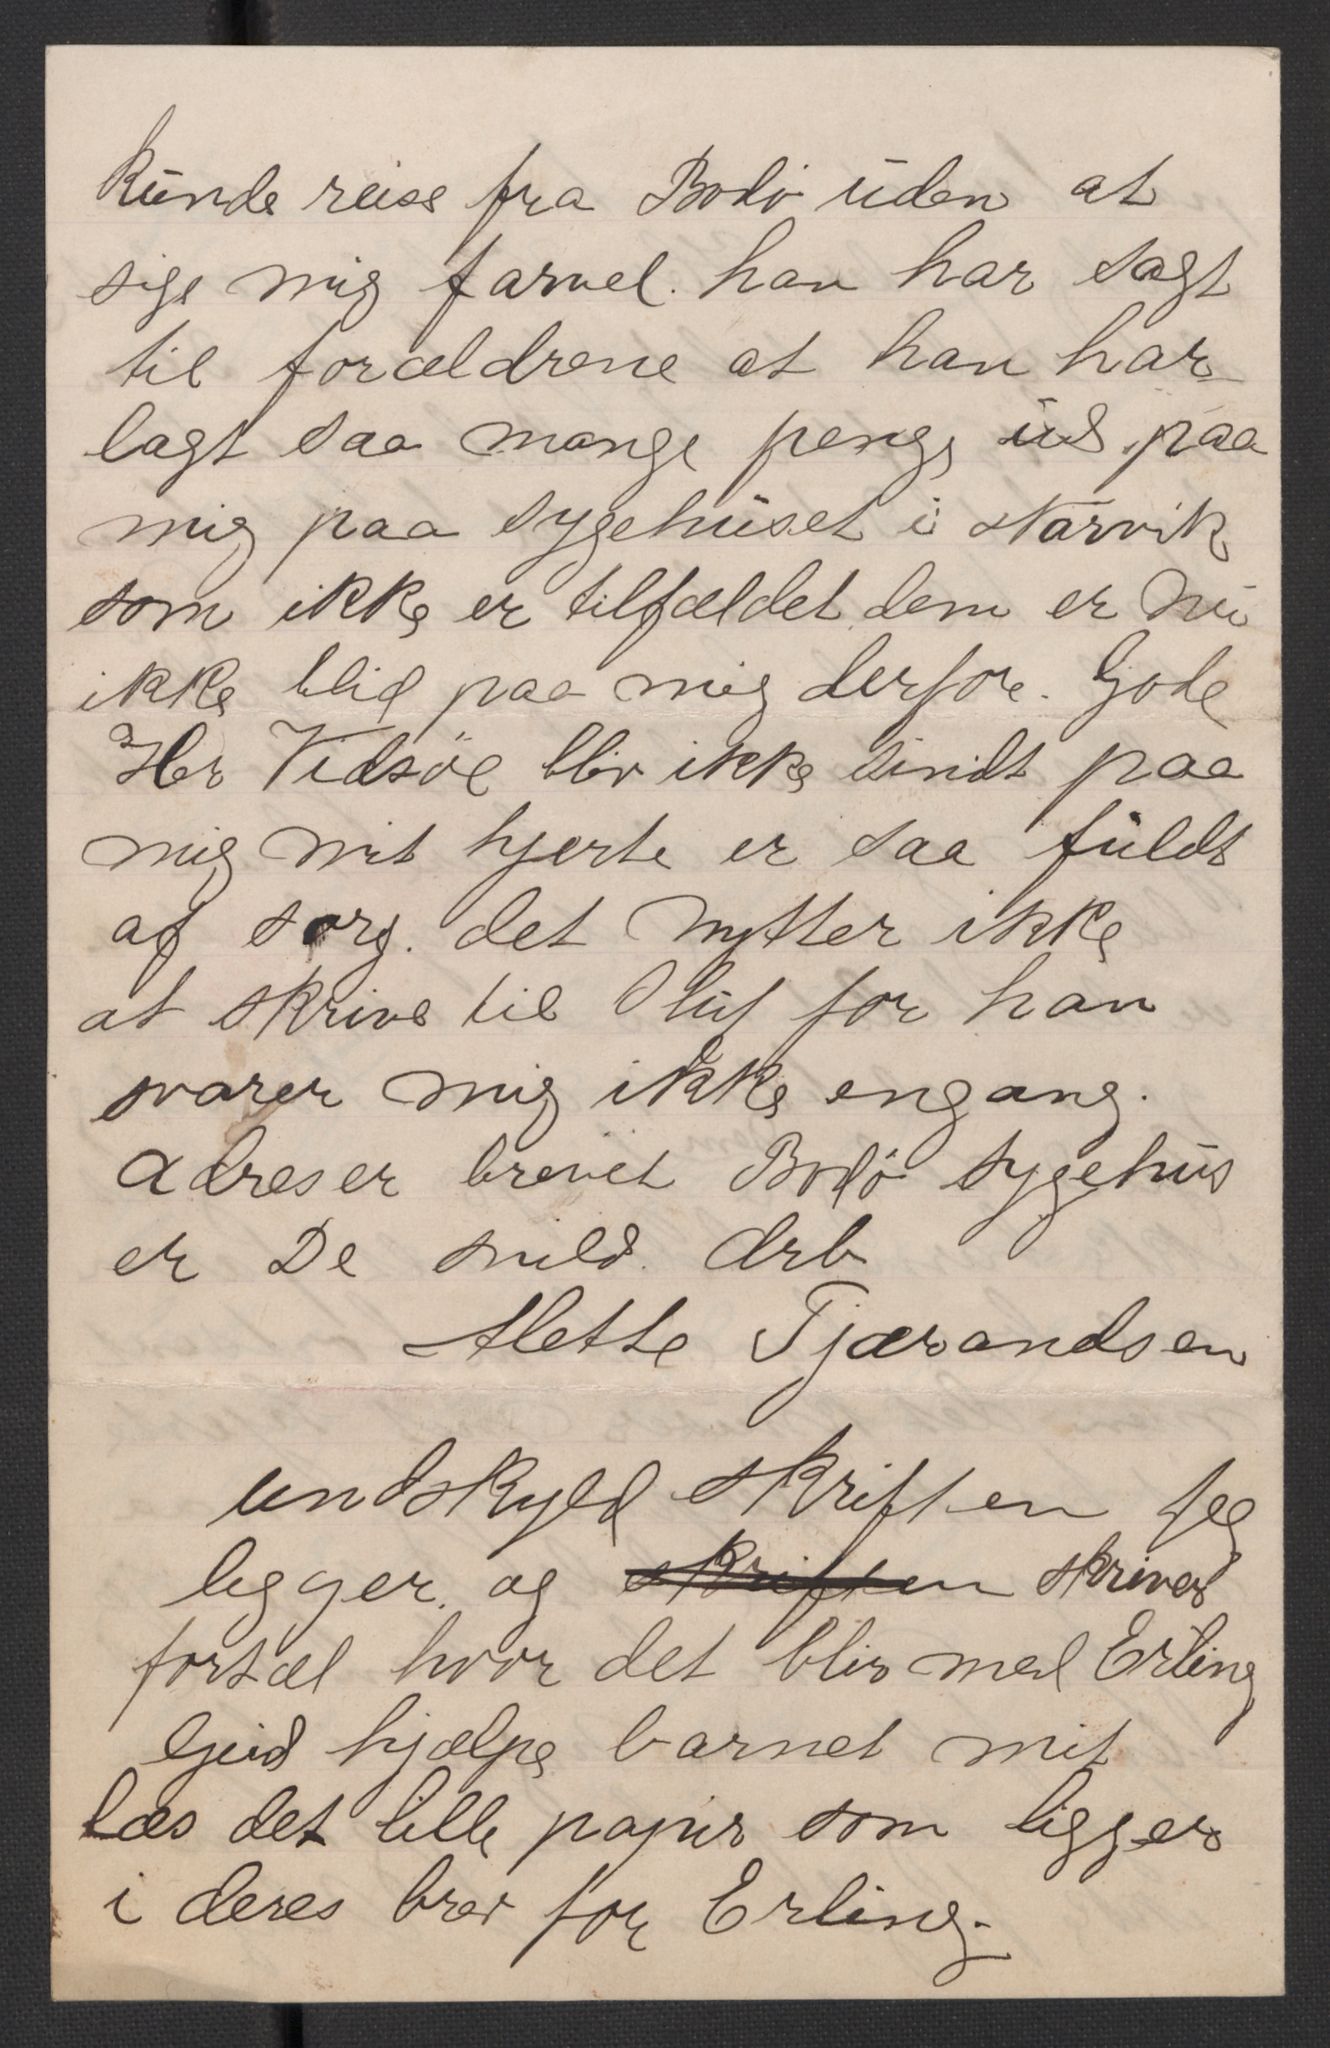 kunde reise fra Bodø uden at
sige mig farvel. han har sagt
til forældrene at han har
lagt saa mange penge ud paa
mig paa sygehuset i Narvik
som ikke er tilfældet dem er nu
ikke blid paa mig derfor. Gode
Her Vidsøe bliv ikke sindt paa
mig mit hjerte er saa fuldt
af sorg. det nytter ikke
at skrive til Oluf for han
svarer mig ikke engang.
Adreser brevet Bodø sygehus
er De snild. Ærb
Mette Tjærandsen
undskyld skriften jeg
ligger og skriften skriver
fortæl hvor det blir med Erling
Gud hjælpe barnet mit
Læs det lille papir som ligger
i deres brev for Erling.